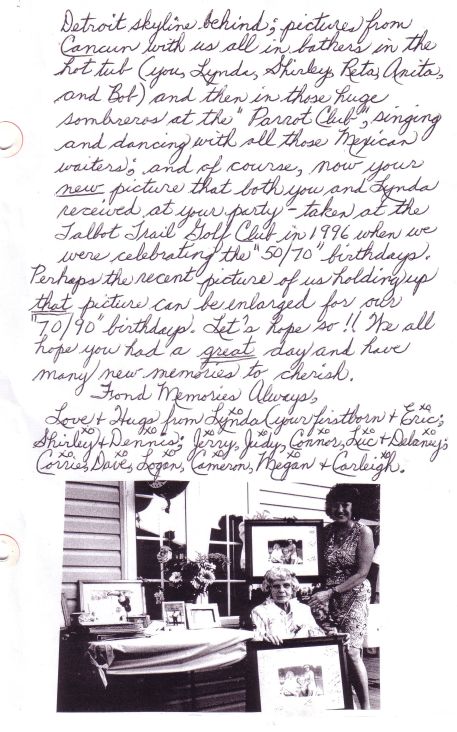 Detroit skyline behind; pictures from
Cancun with us all in bathers in the
hot tub (you, Lynda, Shirley, Reta, Anita,
and Bob) and then in those huge
sombreros at the "Parrot Club", singing
and dancing with all those Mexican
waiters; and of course, now your
new picture that both you and Lynda
received at your party - taken at the
Talbot Trail Golf Club in 1996 when we
were celebrating the "50/70" birthdays.
Perhaps the recent picture of us holding up
that picture can be enlarged for our
"70/90" birthdays. Let's hope so!! We all
hope you had a great day and have
many new memories to cherish.
Fond Memories Always,
Love + Hugs from Lynda (your firstborn + Eric;
Shirley + Dennis; Jerry, Judy, Connor, Luc + Delaney;
Corrie, Dave, Logan, Cameron, Megan + Carleigh.